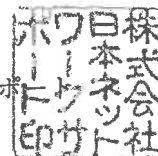 株式会社
日本ネット
ワークサ
ポート印